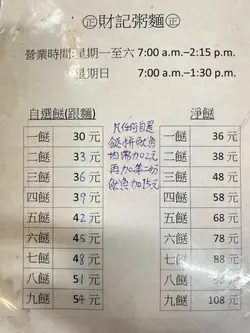 ㊣財記粥麵㊣
營業時間:星期一至六 7:00 a.m.–2:15 p.m.
星期日 7:00 a.m.–1:30 p.m.
自選餸(跟麵)
一餸 30 元
二餸 33 元
三餸 36 元
四餸 39 元
五餸 42 元
六餸 45 元
七餸 48 元
八餸 51 元
九餸 54 元
凡任何自選
餸併鮫魚
均需加2元
再加第二份
鮫魚加15元
淨餸
一餸 36 元
二餸 40 元
三餸 48 元
四餸 58 元
五餸 68 元
六餸 78 元
七餸 88 元
八餸 元
九餸 108 元